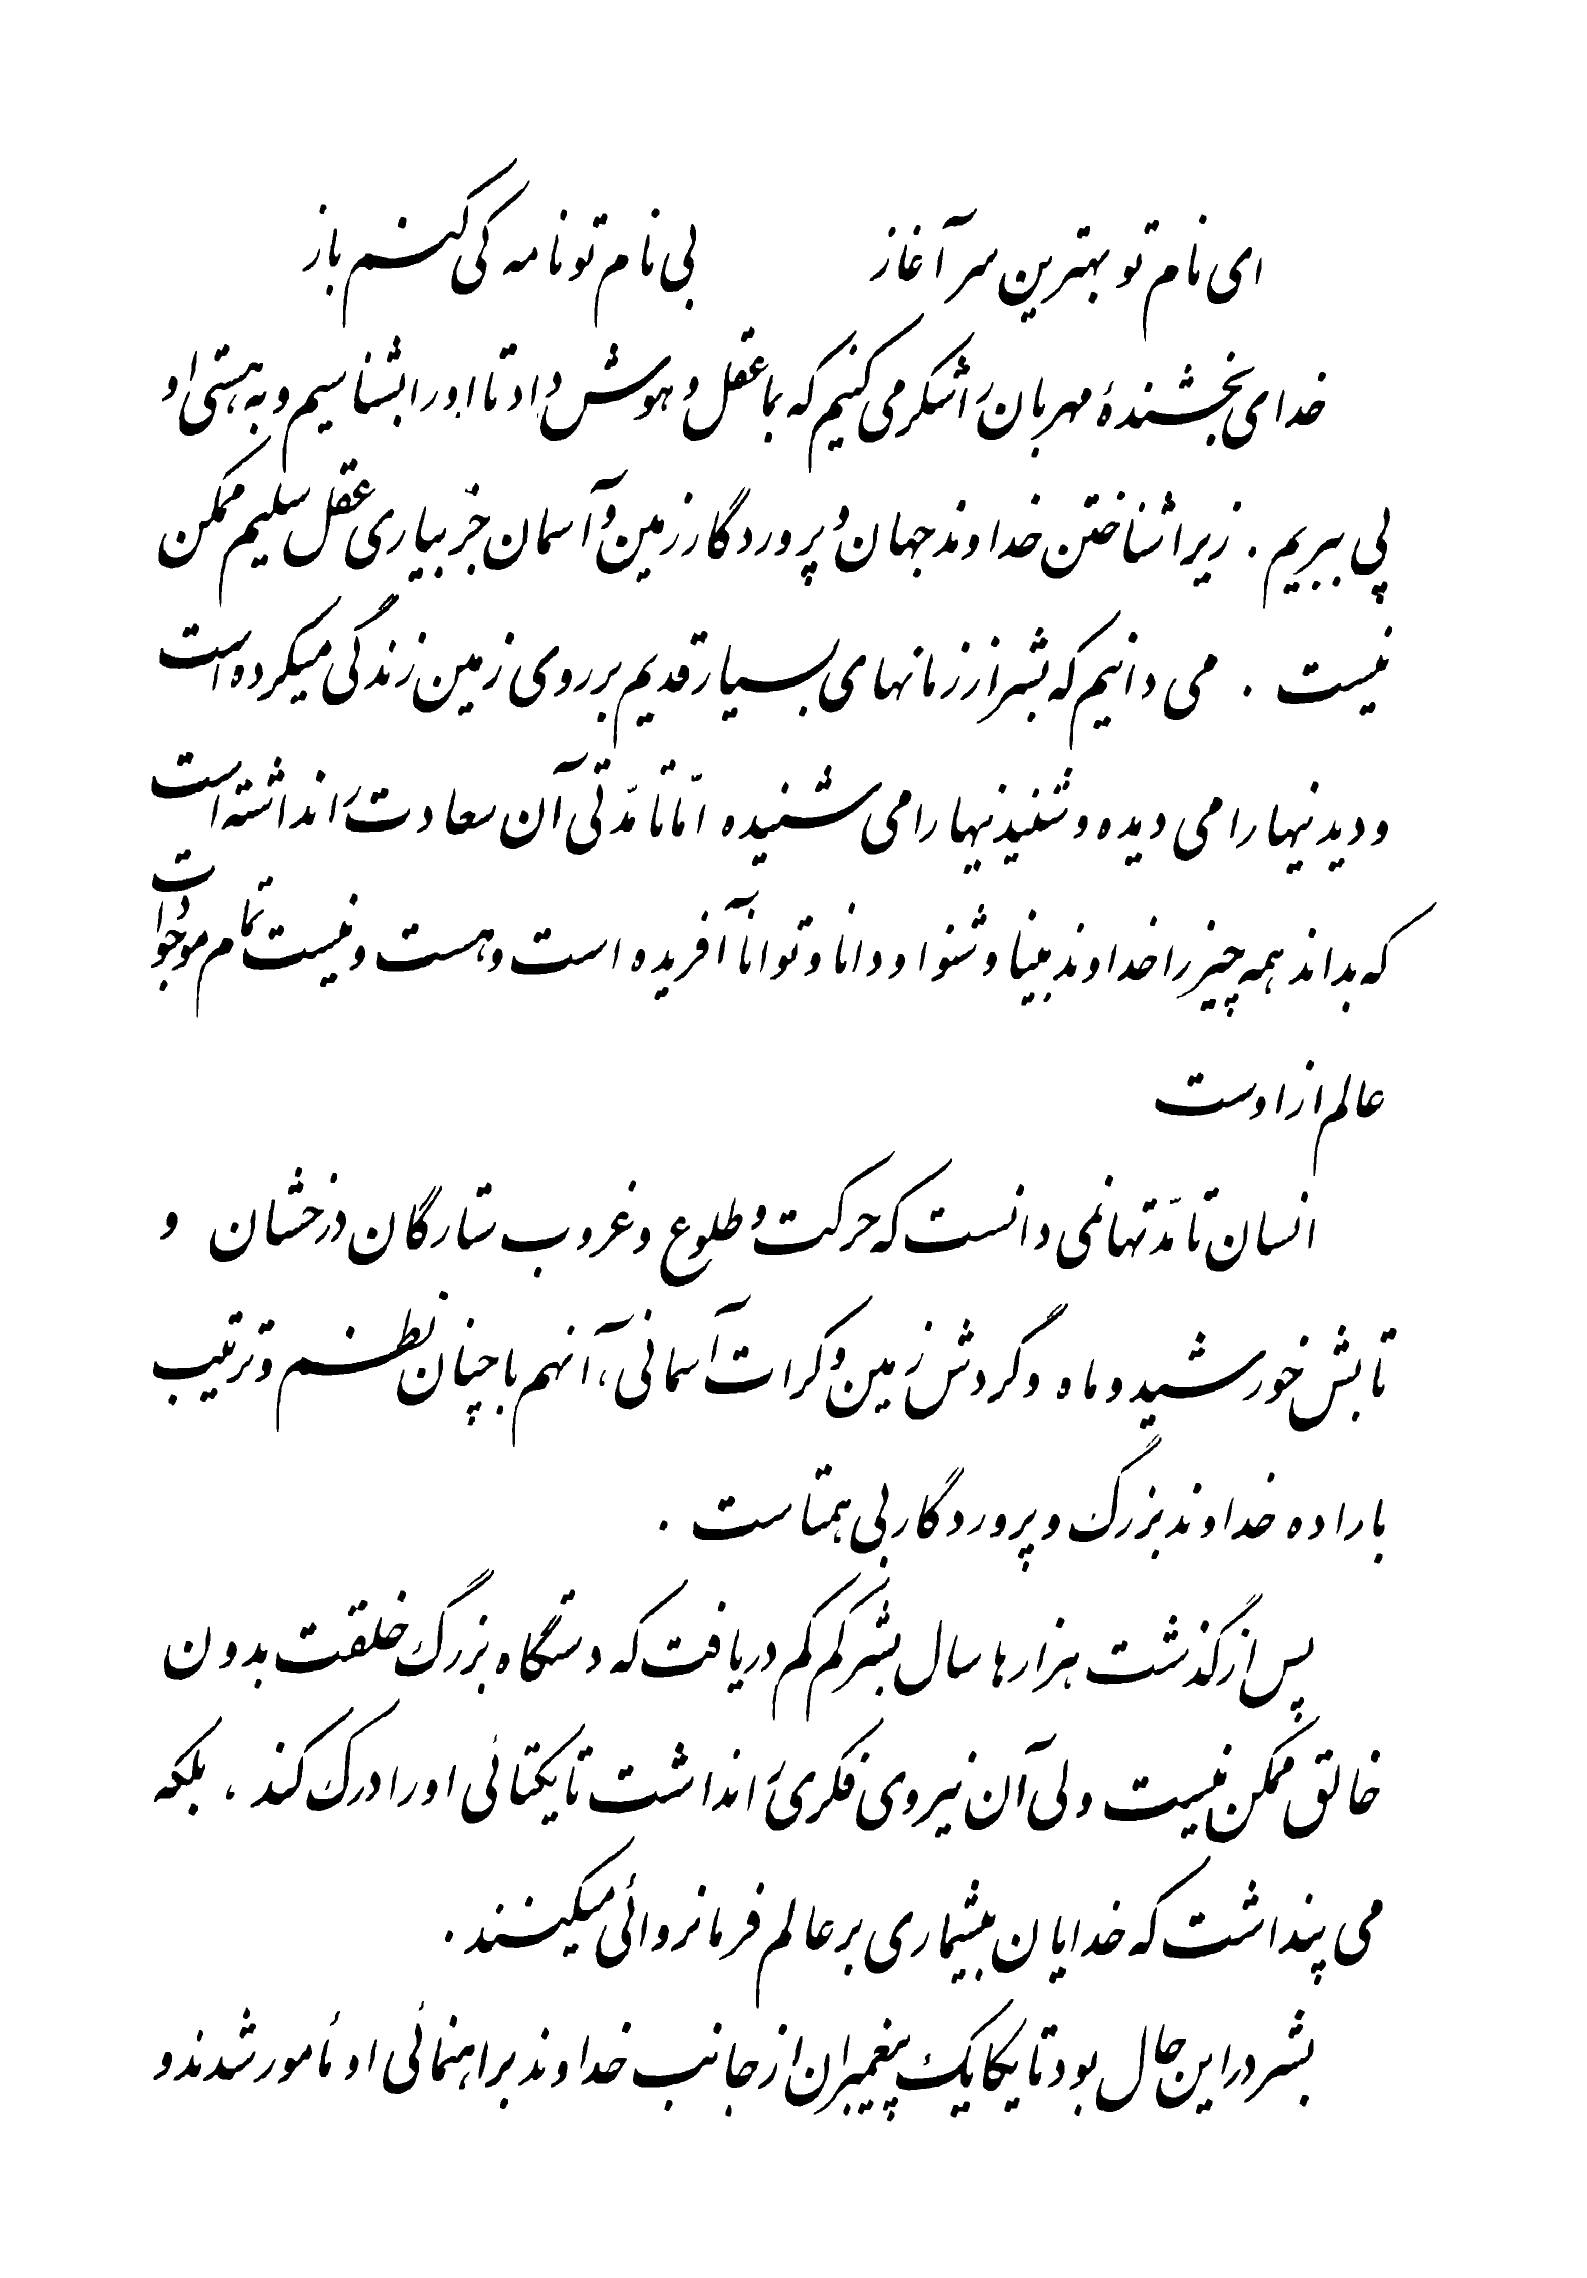 ای نام تو بهترین سرآغاز بی نام تو نامه کی کنم باز
خدای بخشندهٔ مهربان را شکر می کنیم که بما عقل و هوش داد تا او را بشناسیم و به هستی او
پی ببریم . زیرا شناختن خداوند جهان و پروردگار زمین و آسمان جز بیاری عقل سلیم ممکن
نیست . می دانیم که بشر از زمانهای بسیار قدیم بر روی زمین زندگی میکرده است
و دیدنیها را می دیده و شنیدنیها را می شنیده امّا تا مدّتی آن سعادت را نداشته است
که بداند همه چیز را خداوند بینا و شنوا و دانا و توانا آفریده است و هست و نیست تمام موجودات
عالم از اوست
انسان تا مدّتها نمی دانست که حرکت و طلوع و غروب ستارگان درخشان و
تابش خورشید و ماه و گردش زمین و کرات آسمانی، آنهم با چنان نظم و ترتیب
باراده خداوند بزرگ و پروردگار بی همتاست .
پس از گذشت هزارها سال بشر کم کم دریافت که دستگاه بزرگ خلقت بدون
خالق ممکن نیست ولی آن نیروی فکری را نداشت تا یکتائی او را درک کند ، بلکه
می پنداشت که خدایان بیشماری بر عالم فرمانروائی میکنند .
بشر در این حال بود تا یکایک پیغمبران از جانب خداوند براهنمائی او مأمور شدند و